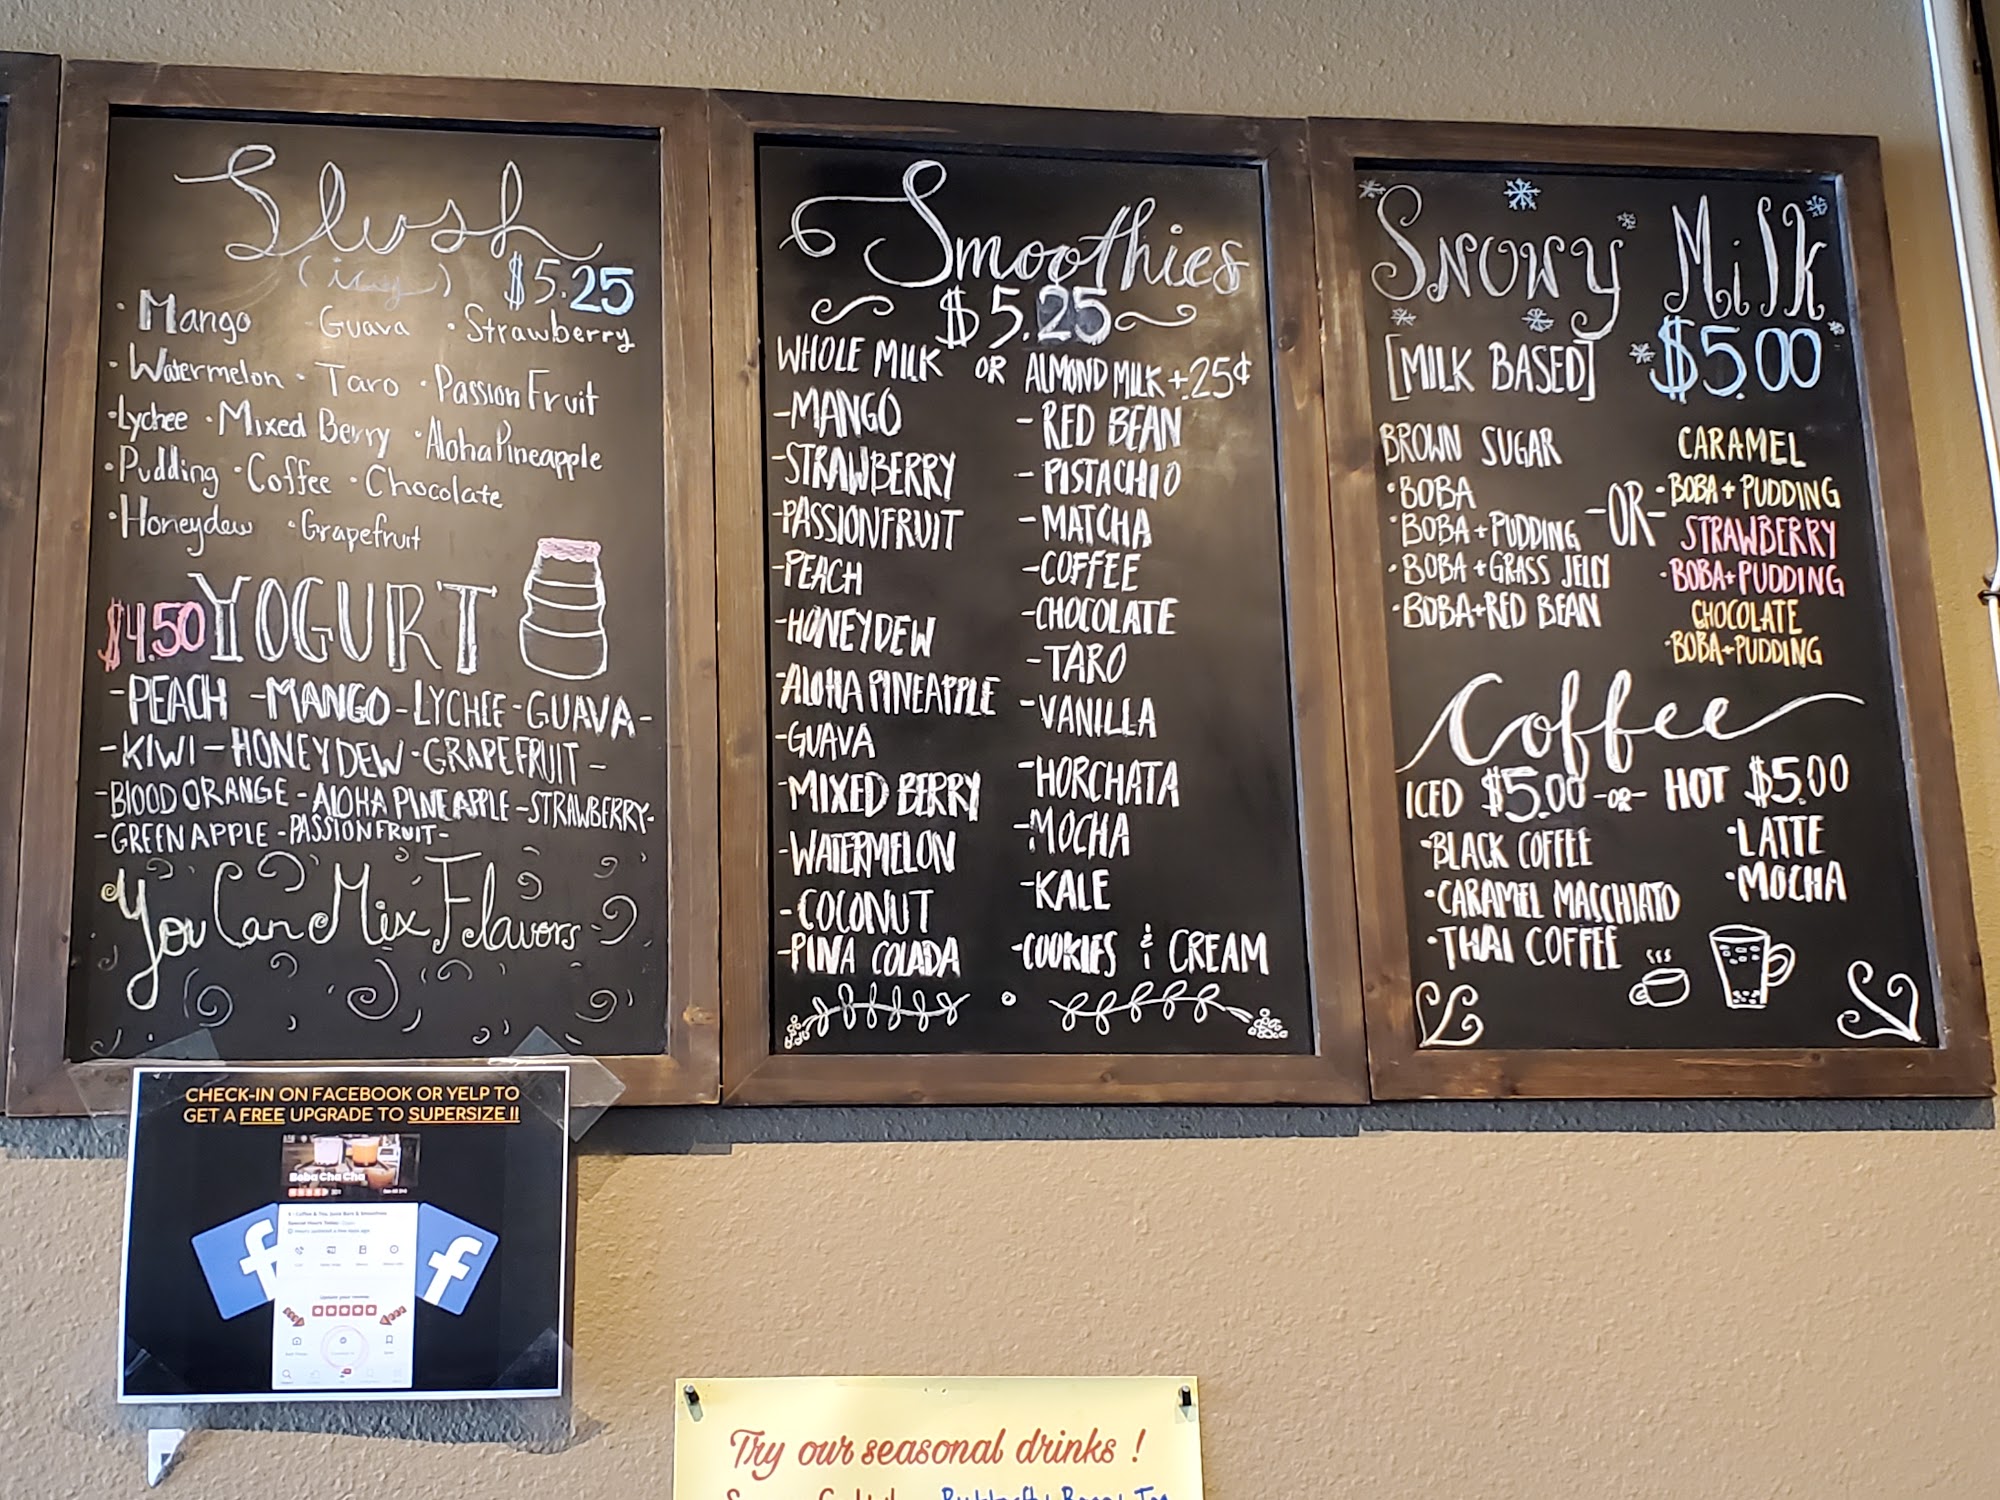 Slush
(icy) $5.25
· Mango · Guava · Strawberry
· Watermelon · Taro · Passion Fruit
· Lychee · Mixed Berry · Aloha Pineapple
· Pudding · Coffee · Chocolate
· Honeydew · Grapefruit
$4.50 YOGURT
- PEACH - MANGO - LYCHEE - GUAVA -
- KIWI - HONEYDEW - GRAPEFRUIT -
- BLOOD ORANGE - ALOHA PINEAPPLE - STRAWBERRY -
- GREEN APPLE - PASSIONFRUIT -
You Can Mix Flavors
Smoothies
$5.25
WHOLE MILK OR ALMOND MILK +.25¢
- MANGO
- STRAWBERRY
- PASSIONFRUIT
- PEACH
- HONEYDEW
- ALOHA PINEAPPLE
- GUAVA
- MIXED BERRY
- WATERMELON
- COCONUT
- PINA COLADA
- RED BEAN
- PISTACHIO
- MATCHA
- COFFEE
- CHOCOLATE
- TARO
- VANILLA
- HORCHATA
- MOCHA
- KALE
- COOKIES & CREAM
SNOWY MILK
[MILK BASED] $5.00
BROWN SUGAR
· BOBA
· BOBA + PUDDING
· BOBA + GRASS JELLY
· BOBA + RED BEAN
- OR -
CARAMEL
· BOBA + PUDDING
STRAWBERRY
· BOBA + PUDDING
CHOCOLATE
· BOBA + PUDDING
Coffee
ICED $5.00 - OR - HOT $5.00
· BLACK COFFEE
· CARAMEL MACCHIATO
· THAI COFFEE
· LATTE
· MOCHA
CHECK-IN ON FACEBOOK OR YELP TO
GET A FREE UPGRADE TO SUPERSIZE !!
Boba Cha Cha
Try our seasonal drinks !